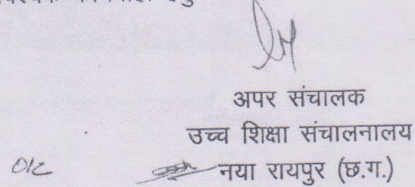 अपर संचालक
उच्च शिक्षा संचालनालय
नया रायपुर (छ.ग.)